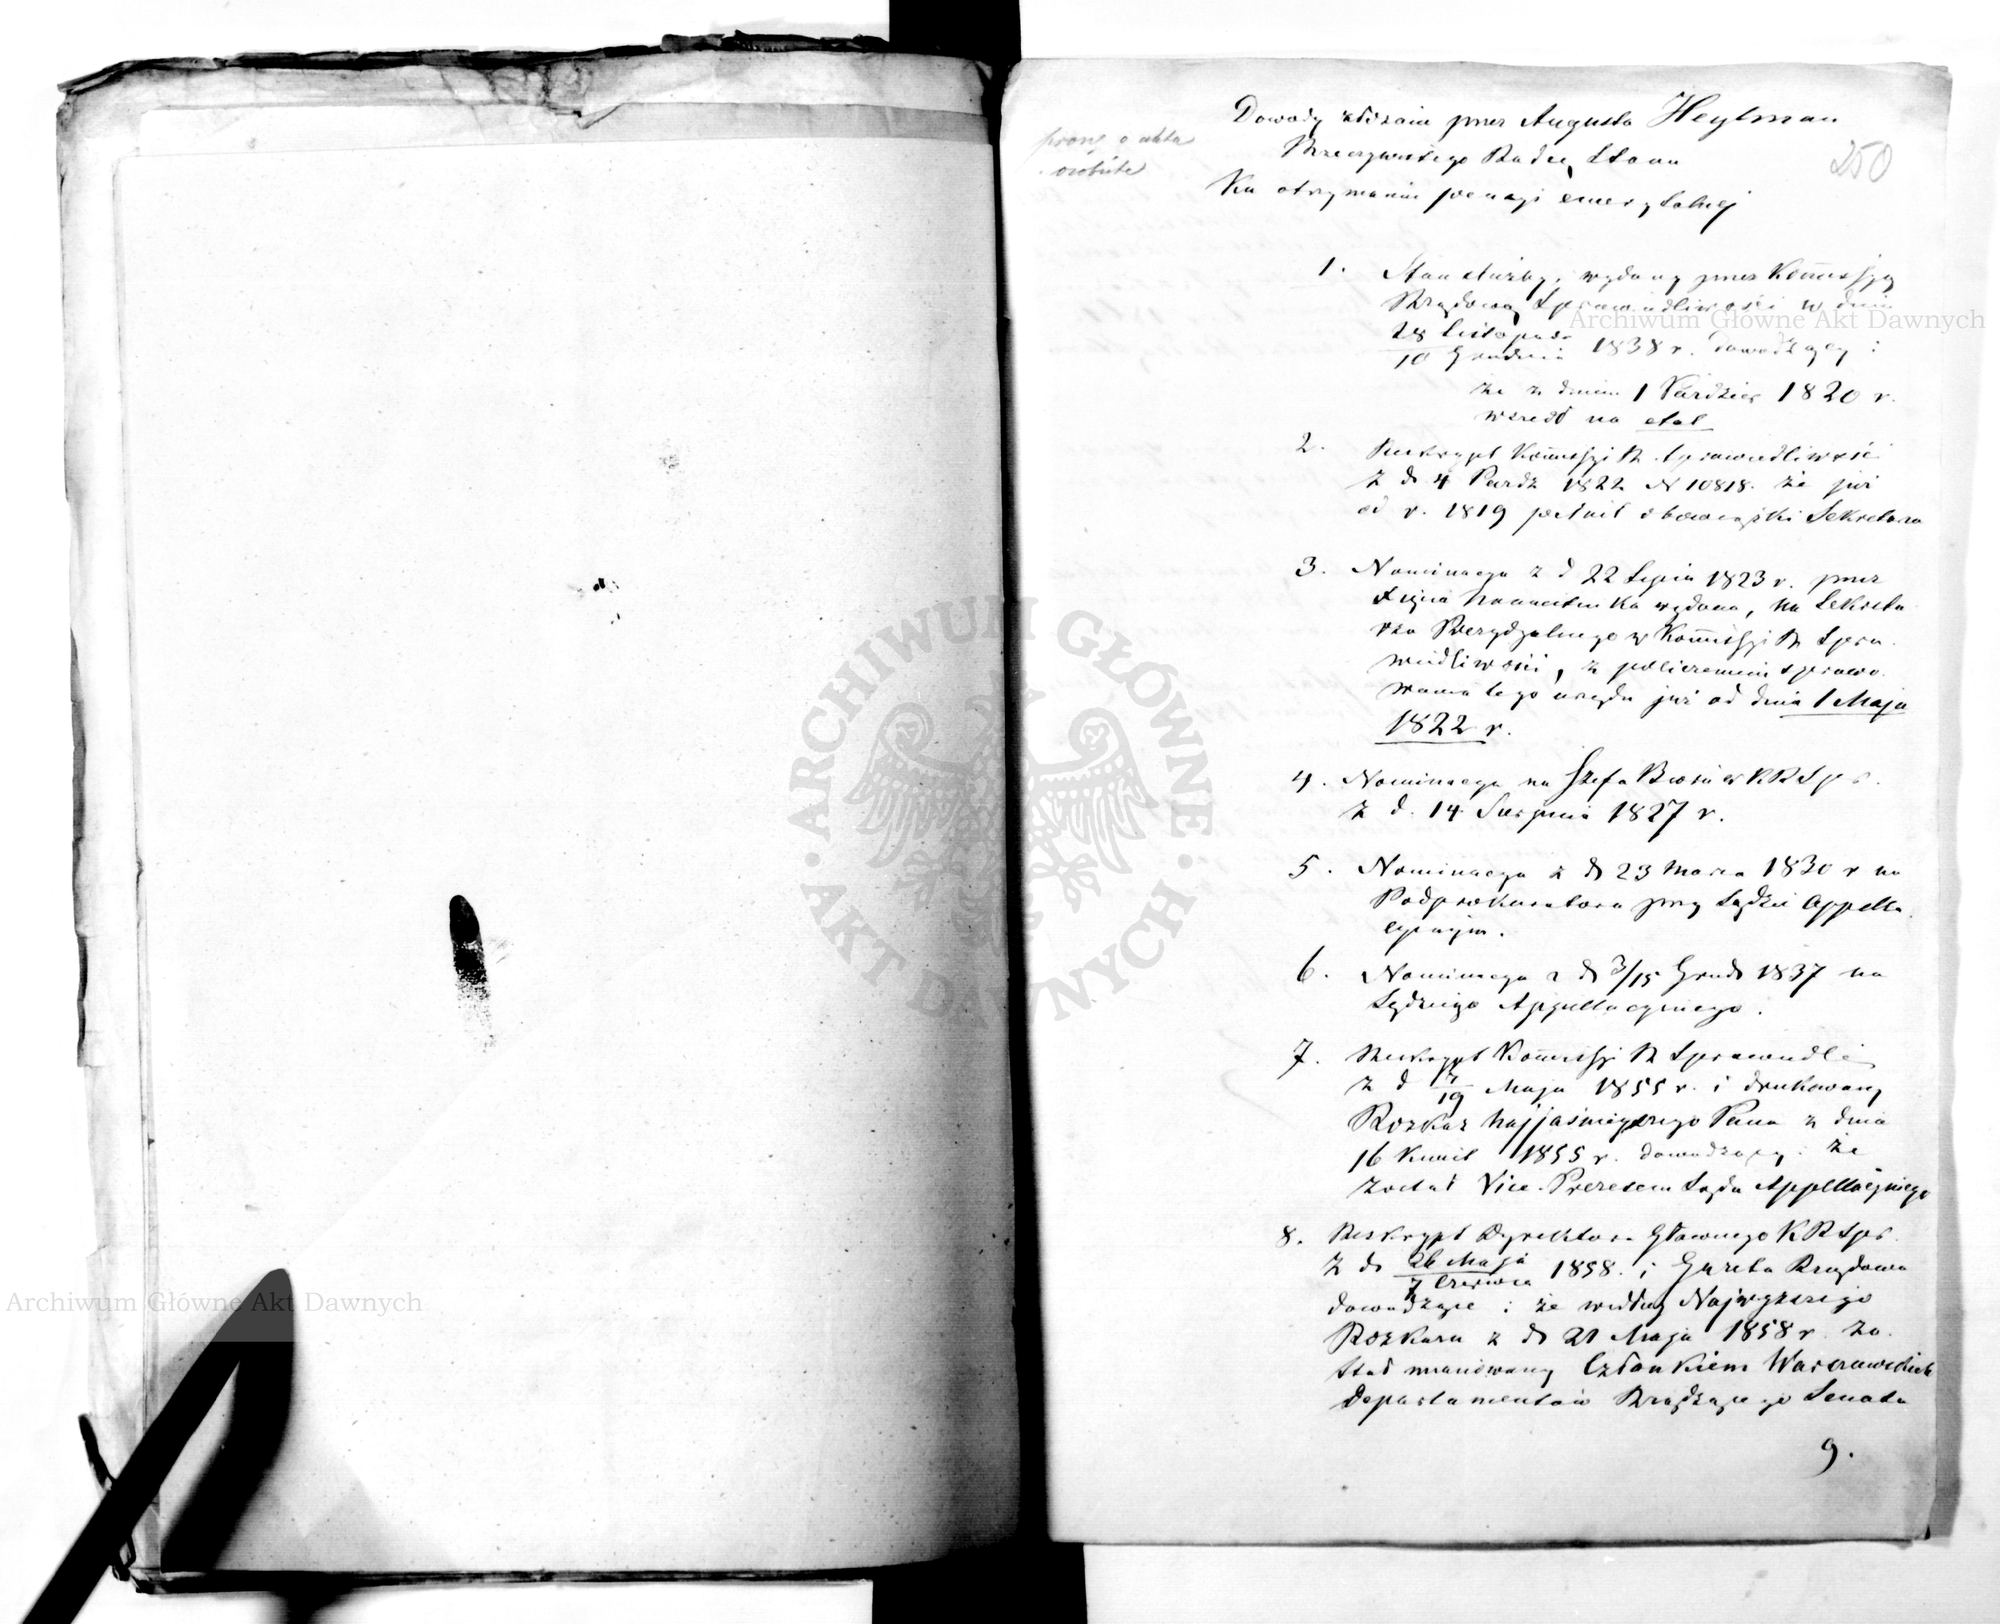 Dowody złożone przez Augusta Heylman
Rzeczywistego Radcę Stanu
Ku otrzymaniu pensyi emerytalnej
proszę o akta
osobiste
250
1. Stan służby, wydany przez Kommissyą
Rządową Sprawiedliwości w dniu
28 Listopada
10 Grudnia 1838 r. dowodzący:
że z dniem 1 Paździer 1820 r.
wszedł na etat
2. Reskrypt Kommissyi R. Sprawiedliwości
z d 4 Paźdz 1822 N 10818. że już
od r. 1819 pełnił obowiązki Sekretarza
3. Nominacya z d 22 Lipca 1823 r. przez
Xięcia Namiestnika wydana, na Sekreta
rza Prezydyalnego w Kommissyi R Spra
wiedliwości, z policzeniem sprawo
wania tego urzędu już od dnia 1 Maja
1822 r.
4. Nominacya na Szefa Biura w KRSpr.
z d. 14 Sierpnia 1827 r.
5. Nominacya z d 23 Marca 1830 r na
Podprokuratora przy Sądzie Appella
cyinym.
6. Nominacya z d 3/15 Grud 1837 na
Sędziego Appellacyinego.
7. Reskrypt Kommissyi R Sprawiedli
z d 7/19 Maja 1855 r. i drukowany
Rozkaz Najjaśniejszego Pana z dnia
16 Kwiet 1855 r. dowodzący: że
został Vice-Prezesem Sądu Appellacyjnego
8. Reskrypt Dyrektora Głównego KRSpr.
z d 26 Maja
7 Czerwca 1858. i Gazeta Rządowa
dowodzące: że według Najwyższego
Rozkazu z d 21 Maja 1858 r. zo
stał mianowany Członkiem Warszawskich
Departamentów Rządzącego Senatu
9.
Archiwum Główne Akt Dawnych
Archiwum Główne Akt Dawnych
ARCHIWUM GŁÓWNE AKT DAWNYCH